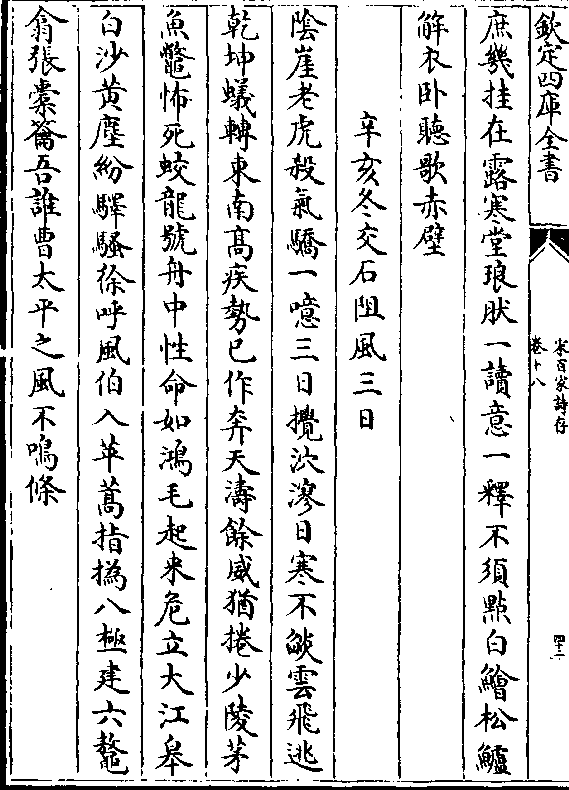 欽定四庫全書
宋百家詩存
卷十八
四十二
庶幾挂在露寒堂琅肰一讀意一釋不須點白鱠松鱸
解衣卧聽歌赤壁
辛亥冬交石阻風三日
陰崖老虎殺氣驕一噫三日攪泬漻日寒不燄雲飛逃
乾坤蟻轉東南髙疾勢已作奔天濤餘威猶捲少陵茅
魚鼈怖死蛟龍號舟中性命如鴻毛起来危立大江皋
白沙黄塵紛驛騷徐呼風伯入苹蒿指撝八極建六鼇
翕張橐籥吾誰曹太平之風不鳴條